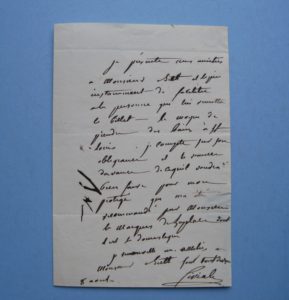 je présente mes amitiés
à Monsieur
instamment de faciliter
à la personne qui lui remettra
ce billet le moyen de
prendre des bains à St
Louis. je compte sur son
obligeance et le remercie
d'avance de ce qu'il voudra
bien faire pour mon
protégé qui m'a été
recommandé par Monsieur
le Marquis de dont
il est le domestique
je renouvelle mes amitiés à
Monsieur
8 août